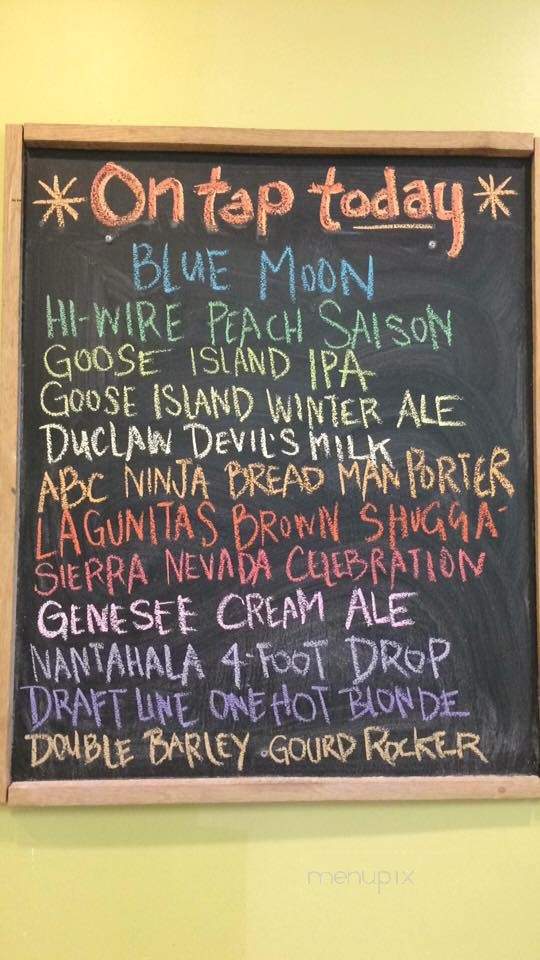 * On tap today *
BLUE MOON
HI-WIRE PEACH SAISON
GOOSE ISLAND IPA
GOOSE ISLAND WINTER ALE
DUCLAW DEVIL'S MILK
ABC NINJA BREAD MAN PORTER
LAGUNITAS BROWN SHUGGA-
SIERRA NEVADA CELEBRATION
GENESEE CREAM ALE
NANTAHALA 4-FOOT DROP
DRAFT LINE ONE HOT BLONDE
DOUBLE BARLEY GOURD ROCKER
menupix